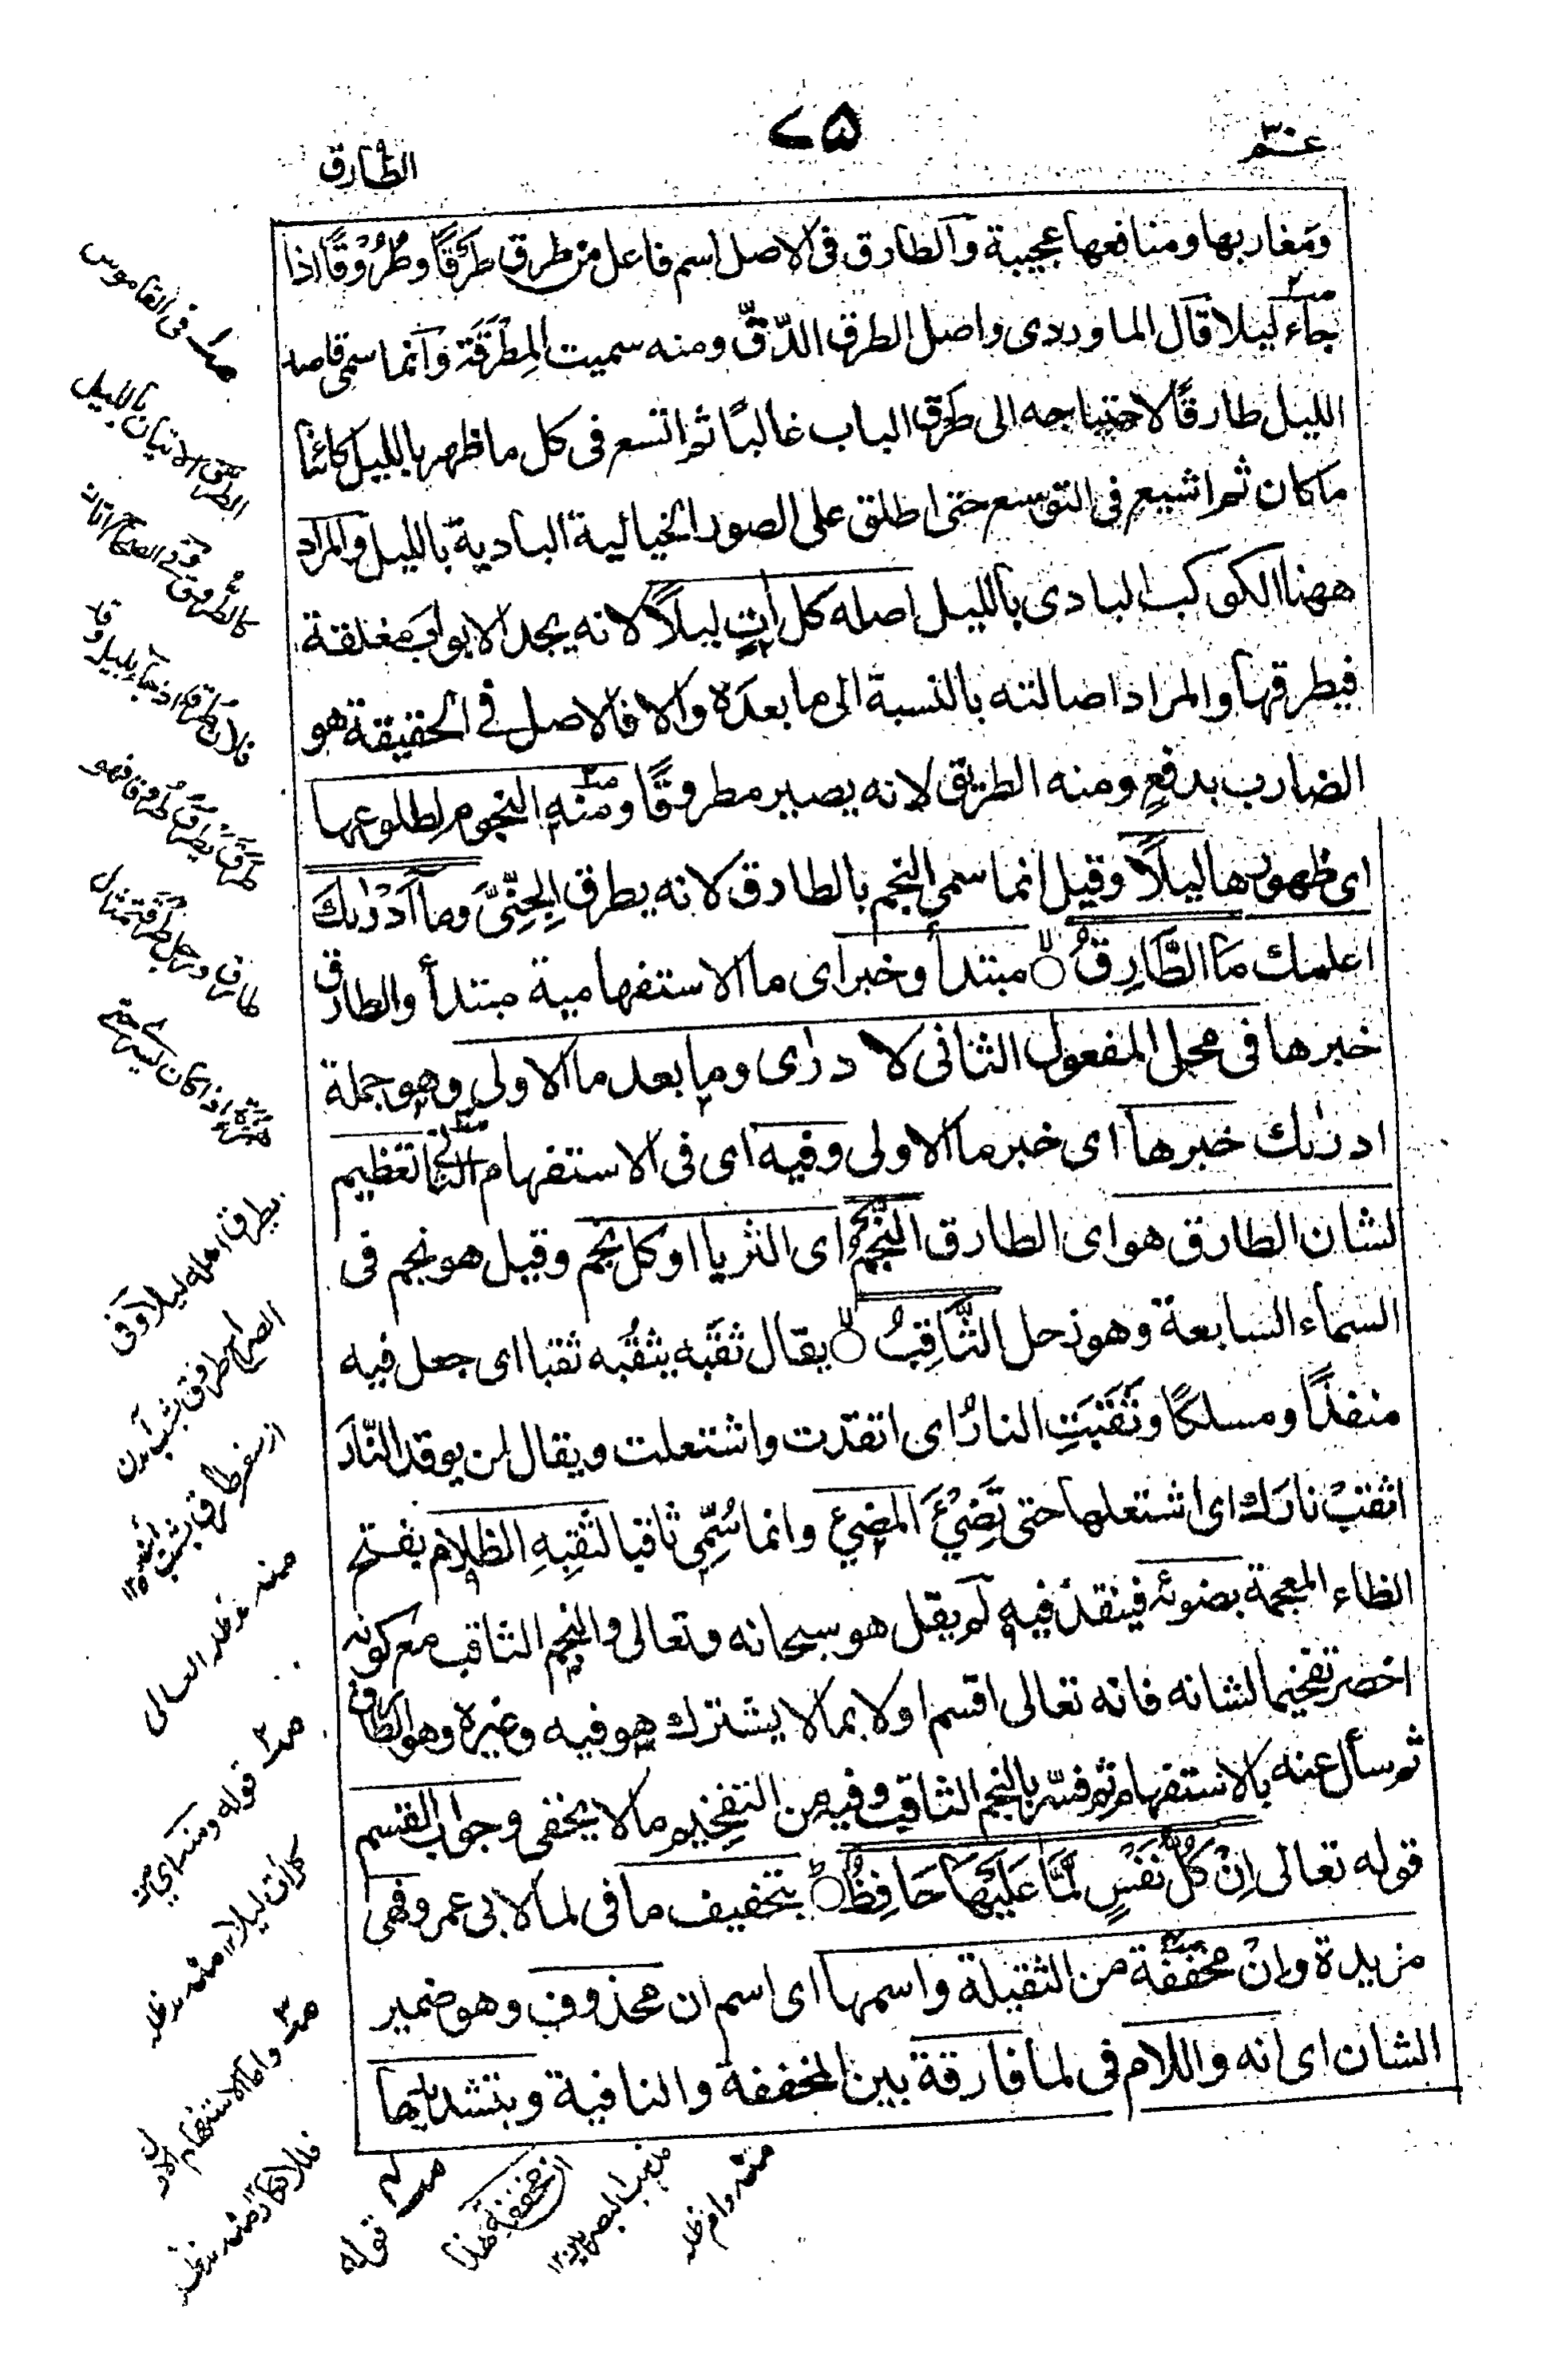 عم
٧٥
الطارق
ومغاربها ومنافعها عجيبة والطارق فى الاصل اسم فاعل من طرق طَرْقًا وطُرُوْقًا اذا
جاء ليلا قال الماوردى واصل الطرق الدّقّ ومنه سميت المِطرَقَة وانما سمى قاصد
الليل طارقًا لاحتياجه الى طَرق الباب غالبًا ثم اتسع فى كل ما ظهر بالليل كائنا
ما كان ثم اشيع فى التوسع حتى اطلق على الصور الخيالية البادية بالليل والمراد
ههنا الكوكب البادى بالليل اصله كل اٰتٍ ليلاً لانه يجد الابواب مغلقة
فيطرقها والمراد اصالته بالنسبة الى ما بعدَه والا فالاصل فى الحقيقة هو
الضارب بدفع ومنه الطريق لانه يصير مطروقًا ومنه النجوم لطلوعها
اى ظهورها ليلاً وقيل انما سمى النجم بالطارق لانه يطرق الجِنِّىَّ وما آدْرٰىكَ
اعلمك مَا الطَّارِقُ مبتدأ وخبر اى ما الاستفهامية مبتدأ والطارق
خبرها فى محل المفعول الثانى لادرٰى وما بعد ما الاولى وهو جملة
ادرٰىك خبرها اى خبر ما الاولى وفيه اى فى الاستفهام الثانى تعظيم
لشان الطارق هو اى الطارق النَّجْمُ اى الثريا او كل نجم وقيل هو نجم فى
السماء السابعة وهو زحل الثَّاقِبُ يقال ثقَبَه يثقُبه ثقبا اى جعل فيه
منفذًا ومسلكًا وثَقَبَتِ النارُ اى اتقدت واشتعلت ويقال لمن يوقد النّارَ
اثقبْ نارَك اى اشتعلها حتى تَضِيْءَ المضيء وانما سُمِّى ثاقبا لثَقبِهِ الظلام بفتح
الظاء المعجمة بضوئه فينفذ فيه لم يقل هو سبحانه وتعالى والنجم الثاقب مع كونه
اخصر تفخيما لشانه فانه تعالى اقسم اولا بما لا يشترك هو فيه وغيره وهو الطارق
ثم سأل عنه بالاستفهام ثم فسّر بالنجم الثاقب وفيه من التفخيم ما لا يخفى وجواب القسم
قوله تعالى اِنْ كُلُّ نَفْسٍ لَّمَّا عَلَيْهَا حَافِظٌ بتخفيف ما فى لما لابى عمرو فهى
مزيدة وانْ مخففة من الثقيلة واسمها اى اسم ان محذوف وهو ضمير
الشان اى انه واللام فى لما فارقة بين المخففة والنافية وبتشديدها
فى القاموس
الطرق الاتيان بالليل
كالطروق وفى الصحاح اتانا
يطرق اهله ليلا وفى
الصراح طروق بشب آمدن
از سفر طارق بشب
منه مدظله العالى
قوله ومنه اى من
كل اٰت ليلا ١٢ منه مدظله
واما الاستفهام الاول
فللانكار ١٢ منه مدظله
قوله
مخففة هذا
مذهب البصريين ١٢
منه دام ظله